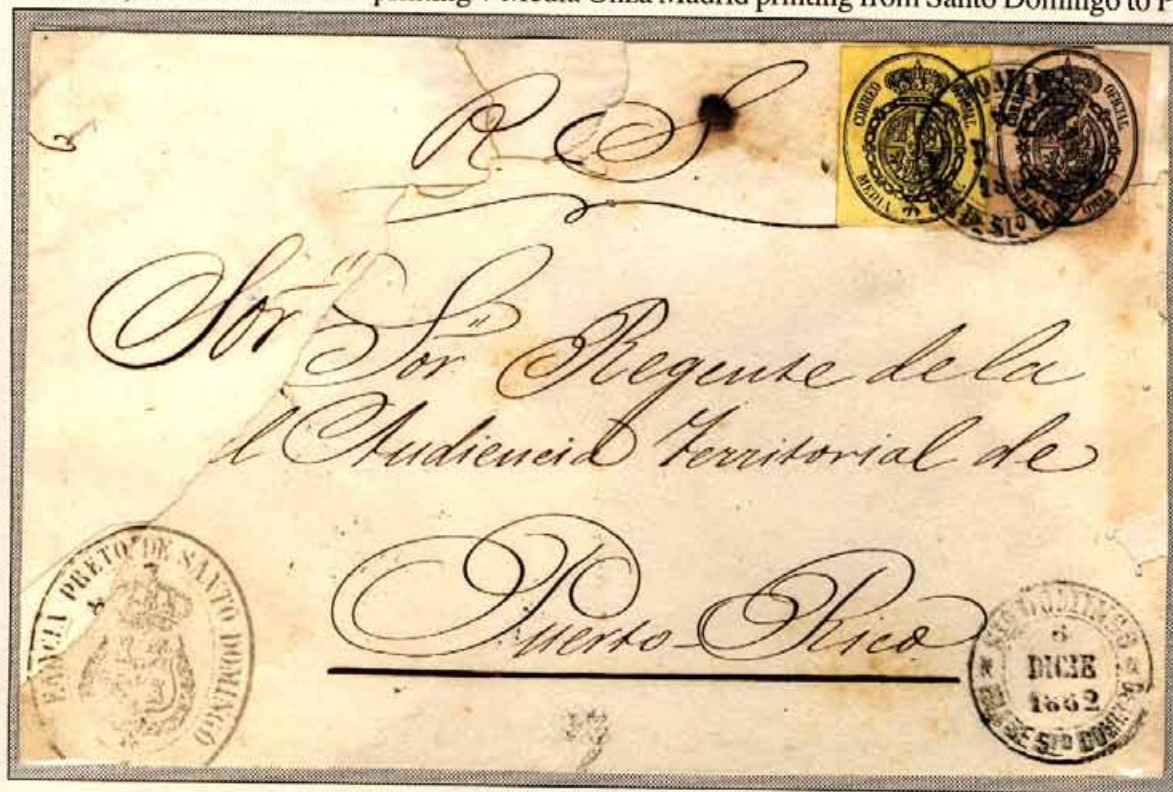 printing + Media Onza Madrid printing from Santo Domingo to P
R S
CORREO OFICIAL
MEDIA ONZA
OFICIAL
Sor Sor Regente de la
Audiencia Territorial de
Puerto-Rico
ENCIA PRETOᴸ DE SANTO DOMINGO
STO DOMINGO
6
DICIE
1862
ISLA DE STO DOMINGO